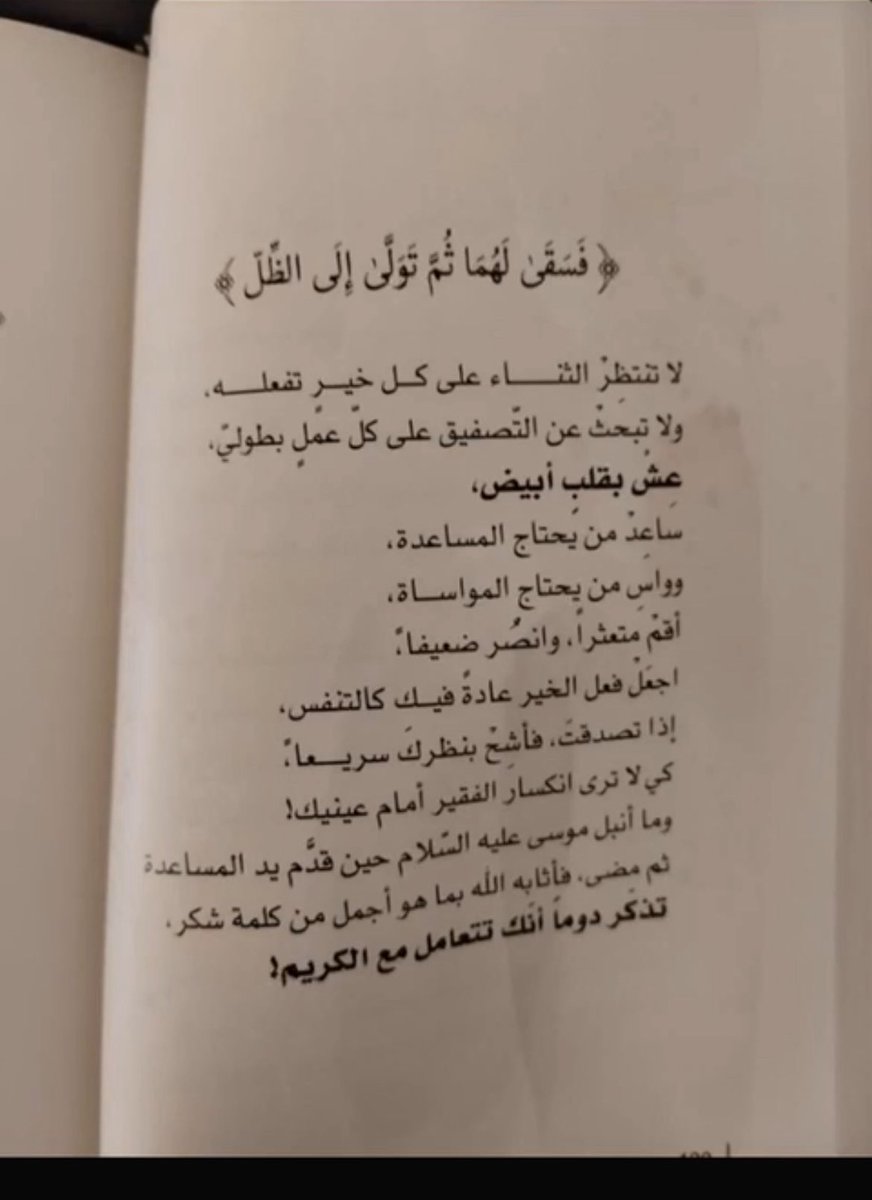 ﴿ فَسَقَىٰ لَهُمَا ثُمَّ تَوَلَّىٰ إِلَى الظِّلّ ﴾
لا تنتظِرْ الثناء على كل خيرٍ تفعله،
ولا تبحثْ عن التّصفيق على كلّ عملٍ بطوليّ،
عِشْ بقلبٍ أبيض،
سَاعِدْ من يحتاج المساعدة،
وواسِ من يحتاج المواساة،
أقمْ متعثراً، وانصُر ضعيفاً،
اجعَلْ فعل الخير عادةً فيك كالتنفس،
إذا تصدقتَ، فأشِحْ بنظركَ سريعاً،
كي لا ترى انكسارَ الفقير أمام عينيك!
وما أنبل موسى عليه السّلام حين قدَّم يد المساعدة
ثم مضى، فأثابه الله بما هو أجمل من كلمة شكر،
تذكَر دوماً أنَك تتعامل مع الكريم!